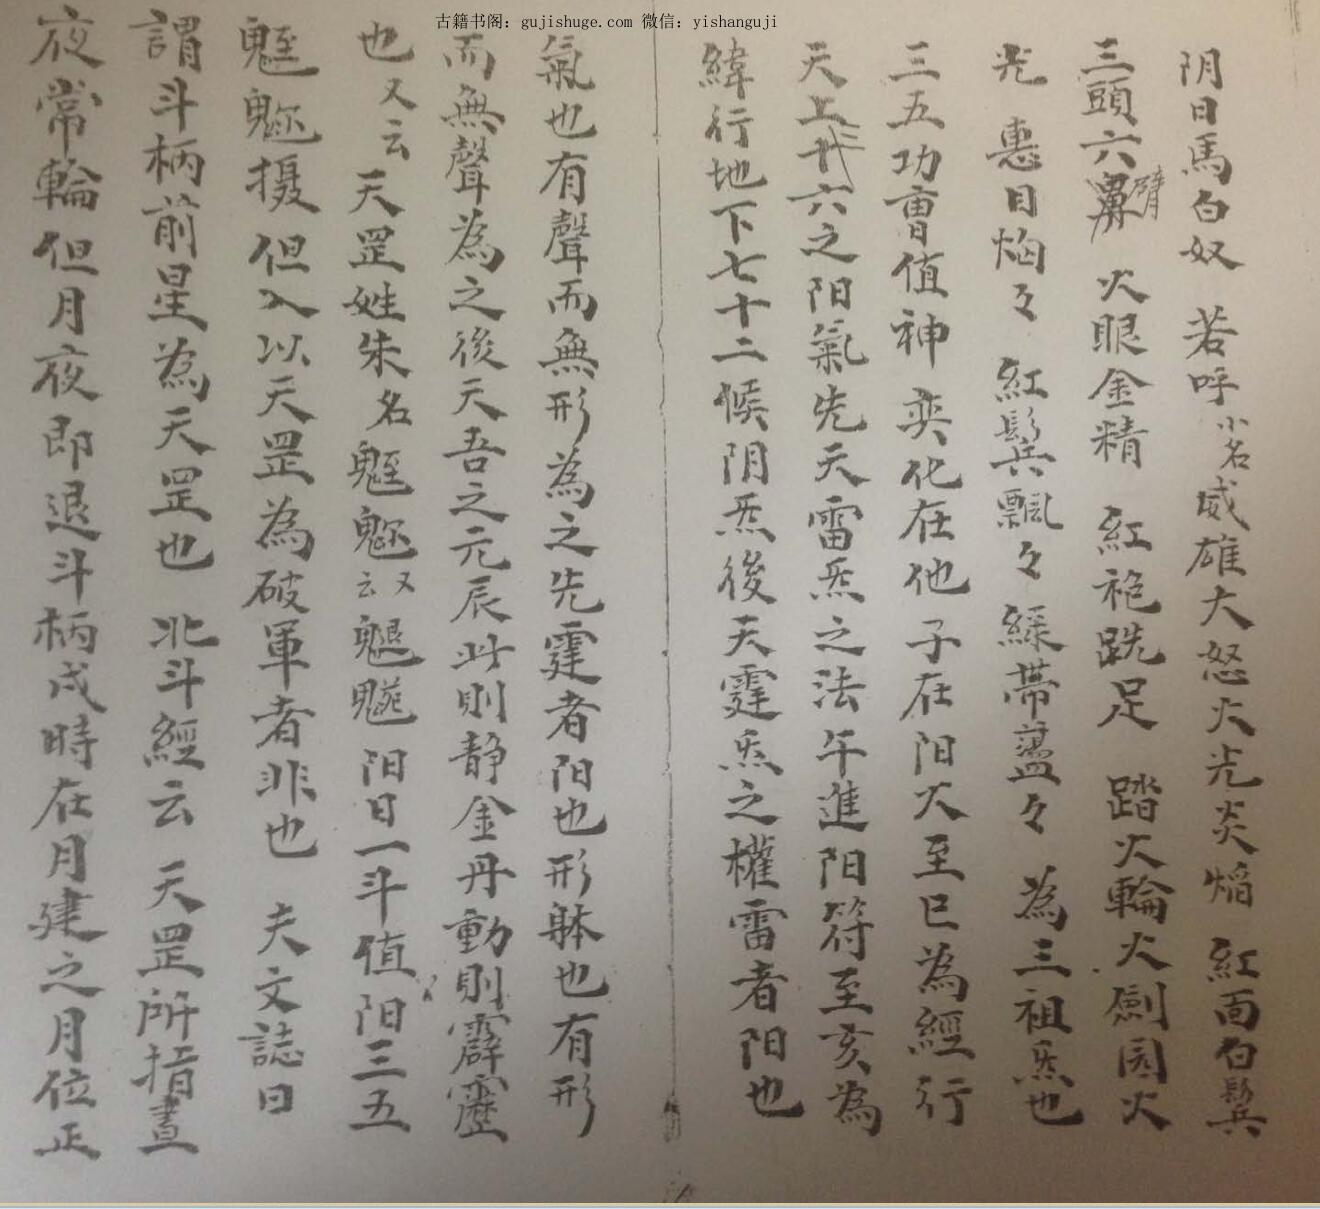 古籍书阁：gujishuge.com 微信：yishanguji
阴日馬白奴 若呼小名威雄大怒火光炎焰 紅面白鬓
三頭六臂 火眼金精 紅袍跣足 踏火輪火劍圆火
光 惠目焰々 紅鬓飄々 緑帶盪々 為三祖炁也
三五功曹值神 奕化在他 子在阳火至巳為經行
天上三十六之阳氣先天雷炁之法午進阳符至亥為
緯行地下七十二候阴炁後天霆炁之權雷者阳也
氣也有聲而無形為之先霆者阳也形躰也有形
而無聲為之後天吾之元辰此則静金丹動則霹靂
也又云天罡姓朱名魁魀又云阳日一斗值阳三五
摄但入以天罡為破軍者非也 夫文誌曰
謂斗柄前星為天罡也 北斗經云 天罡所指晝
夜常輪但月夜即退斗柄戌時在月建之月位正